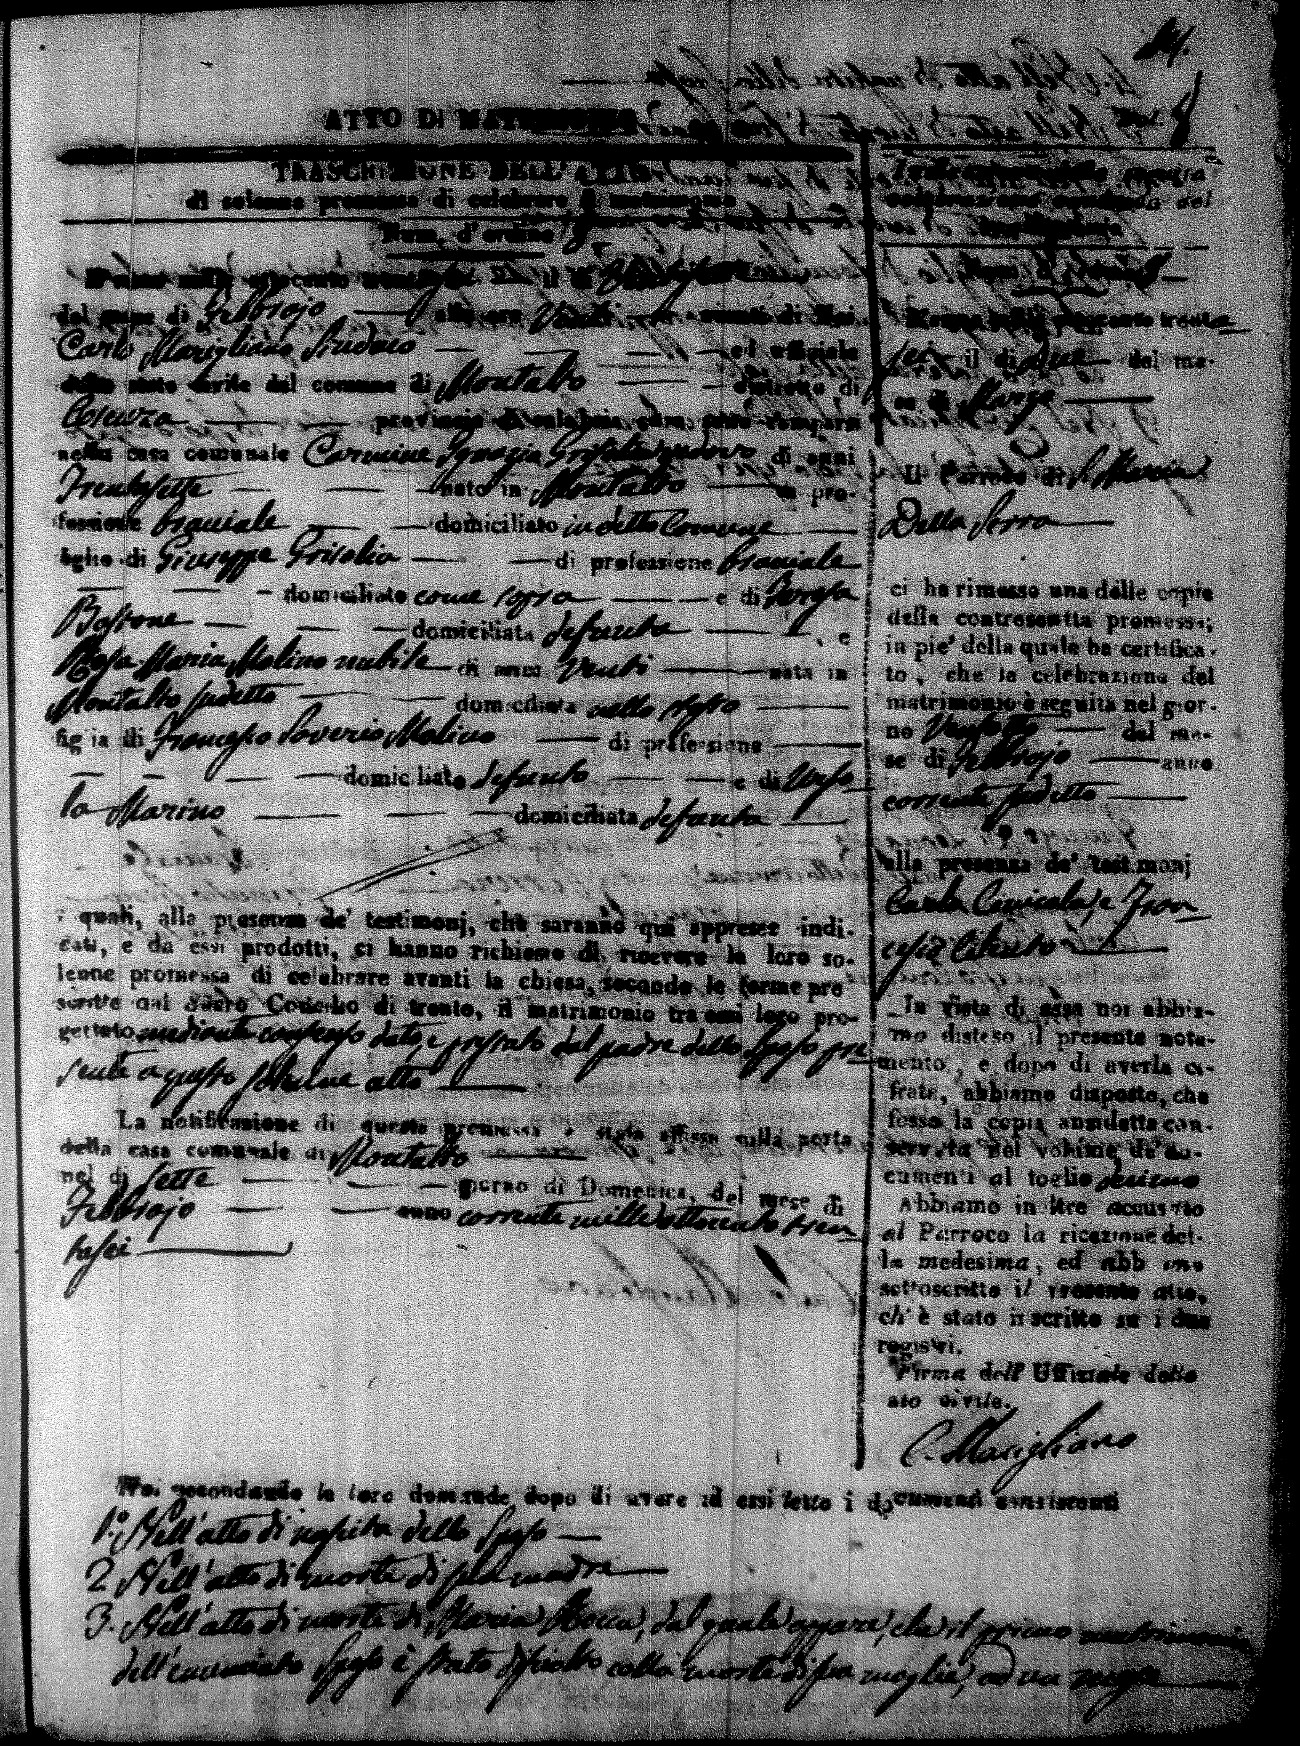 ATTO DI MATRIMONIO
TRASCRIZIONE DELL' ATTO
di solenne promessa di celebrare il matrimonio
Num. d'ordine
L'anno mille ottocento trentasei il di
del mese di Febbrajo alle ore Venti avanti di Noi
Carlo Marigliano Sindaco ed uffiziale
dello stato civile del comune di Montalto distretto di
Cosenza provincia di calabria citra, sono comparsi
nella casa comunale Carmine Ignazio Grisolia vedovo di anni
Trentasette nato in Montalto di pro-
fessione braciale domiciliato in detto Comune
figlio di Giuseppe Grisolia di professione braciale
domiciliato come sopra e di Teresa
Bastone domiciliata defunta , e
Rosa Maria Molino nubile di anni Venti nata in
Montalto sudetto domiciliata nello stesso
figlia di Francesco Saverio Molino di professione
domiciliato defunto e di
Marino domiciliata defunta
i quali, alla presenza de' testimonj, che saranno qui appresso indi-
cati, e da essi prodotti, ci hanno richiesto di ricevere la loro so-
lenne promessa di celebrare avanti la chiesa, secondo le forme pre
scritte dal Sacro Concilio di trento, il matrimonio tra essi loro pro-
gettato mediante consenso dato e prestato dal padre dello Sposo pre
sente a questo solenne atto
La notificazione di questa promessa è stata affissa sulla porta
della casa comunale di Montalto
nel di sette giorno di Domenica, del mese di
Febbrajo anno corrente mille ottocento tren
tasei
Noi secondando la loro domanda dopo di avere ad essi letto i documenti consistenti
1.º Nell'atto di nascita dello Sposo
2. Nell'atto di morte di sua madre
3. Nell'atto di morte di Maria Rocca, dal quale appare, che il primo matrimonio
dell'enunciato Sposo è stato disciolto colla morte di sua moglie,
celebrazione del
matrimonio
L'anno mille ottocento trenta
sei il di due del me-
se di Marzo
Il Parroco di S. Maria
Della Serra
ci ha rimesso una delle copie
della controscritta promessa;
in pie' della quale ha certifica-
to, che la celebrazione del
matrimonio è seguita nel gior-
no Ventotto del me-
se di Febbrajo anno
corrente sudetto
alla presenza de' testimonj
Carlo e Fran
cesco
In vista di essa noi abbia-
mo disteso il presente nota-
mento, e dopo di averla ci-
frata, abbiamo disposto, che
fosse la copia anzidetta con-
servata nel volume de' do-
cumenti al foglio
Abbiamo in oltre accusato
al Parroco la ricezione del-
la medesima, ed abbiamo
sottoscritto il presente atto,
ch' è stato inscritto su i due
registri.
Firma dell' Uffiziale dello
stato civile.
C. Marigliano